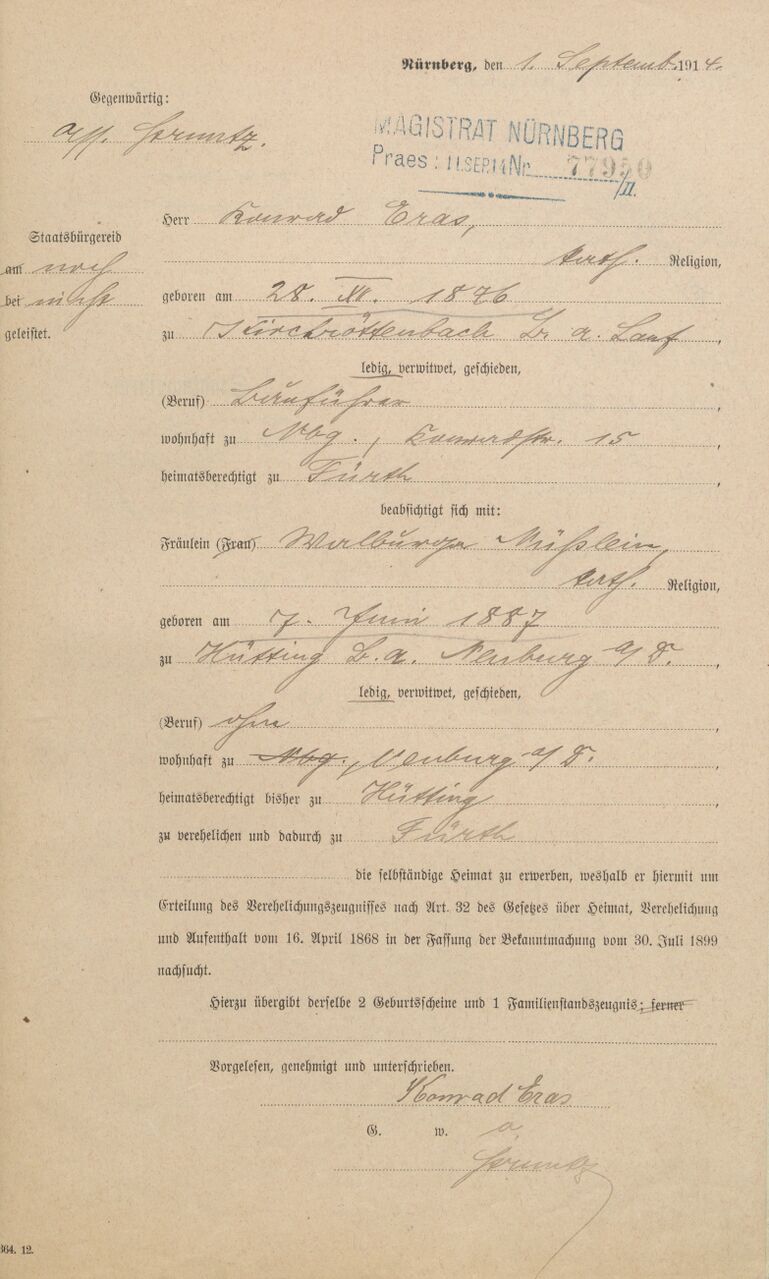 Nürnberg, den 1. Septemb. 1914.
Gegenwärtig:
MAGISTRAT NÜRNBERG
Praes: 11.SEP.14 Nr. 77950
/II.
Herr Konrad Eras,
Staatsbürgereid
am noch
kath. Religion,
bei nicht
geboren am 28. XII. 1876
geleistet.
zu Kirchröttenbach B. a. Lauf,
ledig, verwitwet, geschieden,
(Beruf) Bauführer,
wohnhaft zu Nbg., Konradstr. 15,
heimatsberechtigt zu Fürth
beabsichtigt sich mit:
Fräulein (Frau) Walburga Müßlein,
kath. Religion,
geboren am 7. Juni 1887
zu Hütting B. a. Neuburg a/D.,
ledig, verwitwet, geschieden,
(Beruf) ohne,
wohnhaft zu Nbg., Neuburg a/D.,
heimatsberechtigt bisher zu Hütting,
zu verehelichen und dadurch zu Fürth
die selbständige Heimat zu erwerben, weshalb er hiermit um
Erteilung des Verehelichungszeugnisses nach Art. 32 des Gesetzes über Heimat, Verehelichung
und Aufenthalt vom 16. April 1868 in der Fassung der Bekanntmachung vom 30. Juli 1899
nachsucht.
Hierzu übergibt derselbe 2 Geburtscheine und 1 Familienstandszeugnis; ferner
Vorgelesen, genehmigt und unterschrieben.
Konrad Eras
G. w. o.
364. 12.